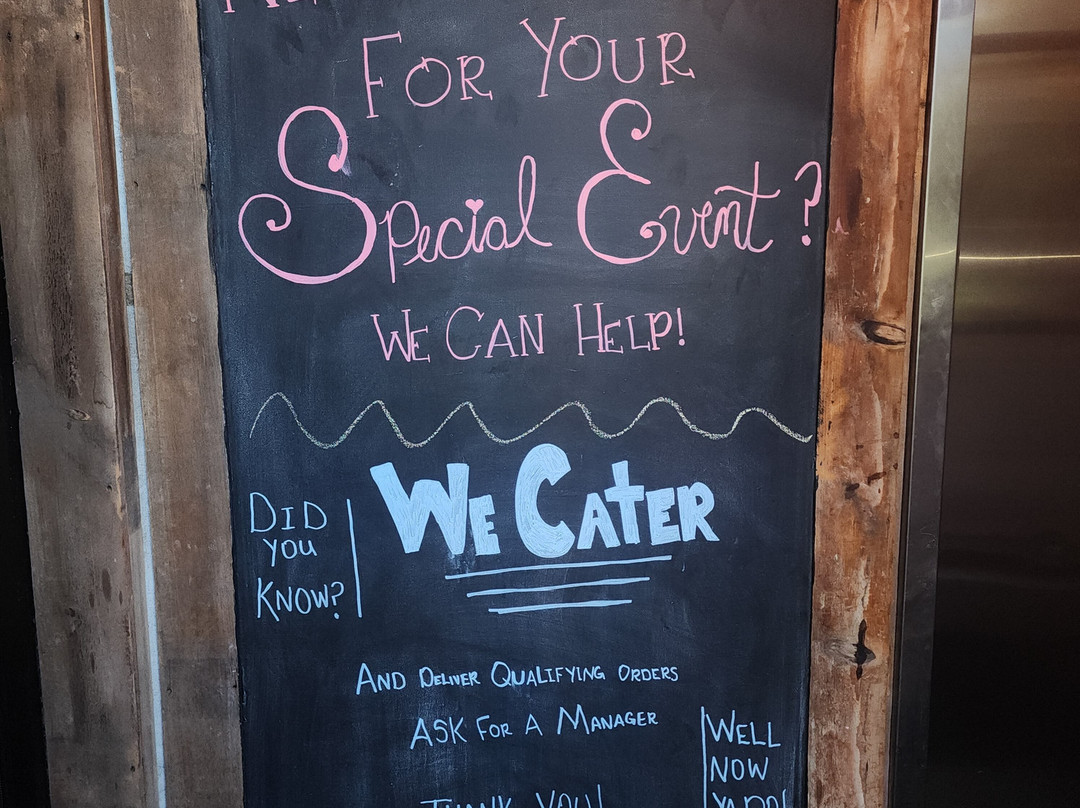 For Your
Special Event?
We Can Help!
Did
you
Know?
We Cater
And Deliver Qualifying Orders
Ask For A Manager
Well
Now
Ya Do!
Thank You!